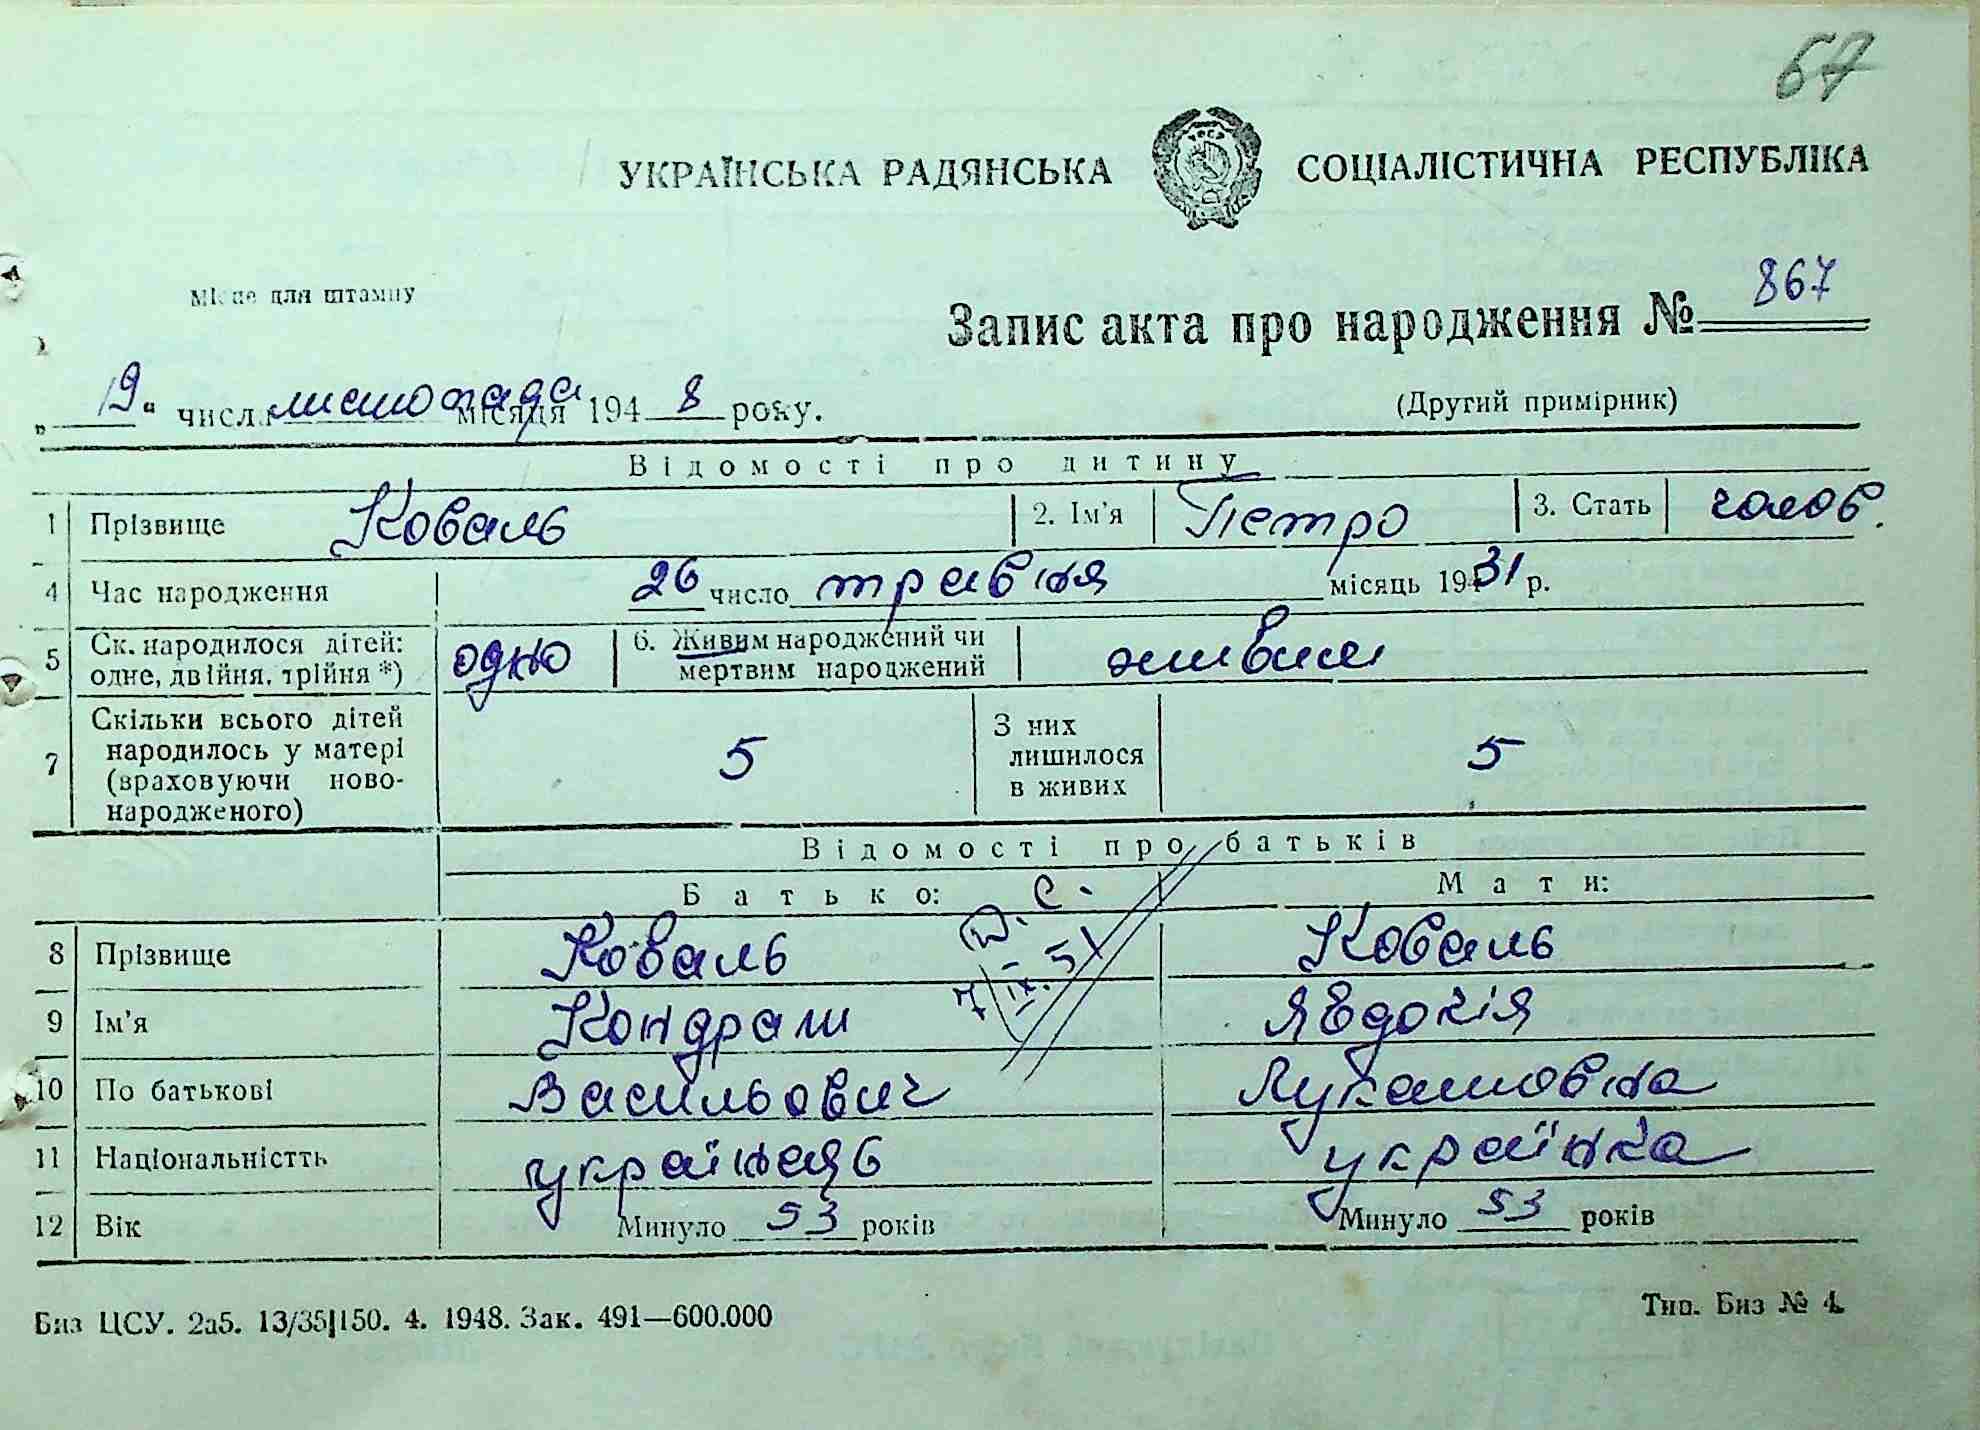 67
УКРАЇНСЬКА РАДЯНСЬКА СОЦІАЛІСТИЧНА РЕСПУБЛІКА
Місце для штампу
Запис акта про народження № 867
„19“ числа листопада місяця 1948 року.
(Другий примірник)
Відомості про дитину
1 Прізвище Коваль 2. Ім'я Петро 3. Стать чолов.
4 Час народження 26 число травня місяць 1931 р.
5 Ск. народилося дітей: одне, двійня, трійня *) одно 6. Живим народжений чи мертвим народжений живим
7 Скільки всього дітей народилось у матері (враховуючи новонародженого) 5 З них лишилося в живих 5
Відомості про батьків
Батько: Мати:
Д. С.
7/IX. 51
8 Прізвище Коваль Коваль
9 Ім'я Кондрат Явдокія
10 По батькові Васильович Лукашовна
11 Національністть українаць українка
12 Вік Минуло 53 років Минуло 53 років
Биз ЦСУ. 2а5. 13/35|150. 4. 1948. Зак. 491—600.000
Тип. Биз № 4.